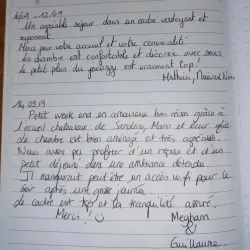 10/09 - 12/09
Un agréable séjour dans un cadre verdoyant et
reposant.
Merci pour votre accueil et votre convivialité.
La chambre est confortable et décorée avec soin.
Le petit plus du jacuzzi est vraiment top!
Mathieu,
14.09.19
Petit week end en amoureux bien réussi grâce à
l'accueil chaleureux de Sandra, Marc et leur gîte
de chambre est bien aménagé et très agréable.
Nous avons pu profiter d'un repas et d'un
petit déjeuné dans une ambiance détendu.
Il manquerait peut être un accès wifi pour le
soir après une grosse journée
Le cadre est top et la tranquilité assuré.
Merci! ☺
Meghann
Guillaume